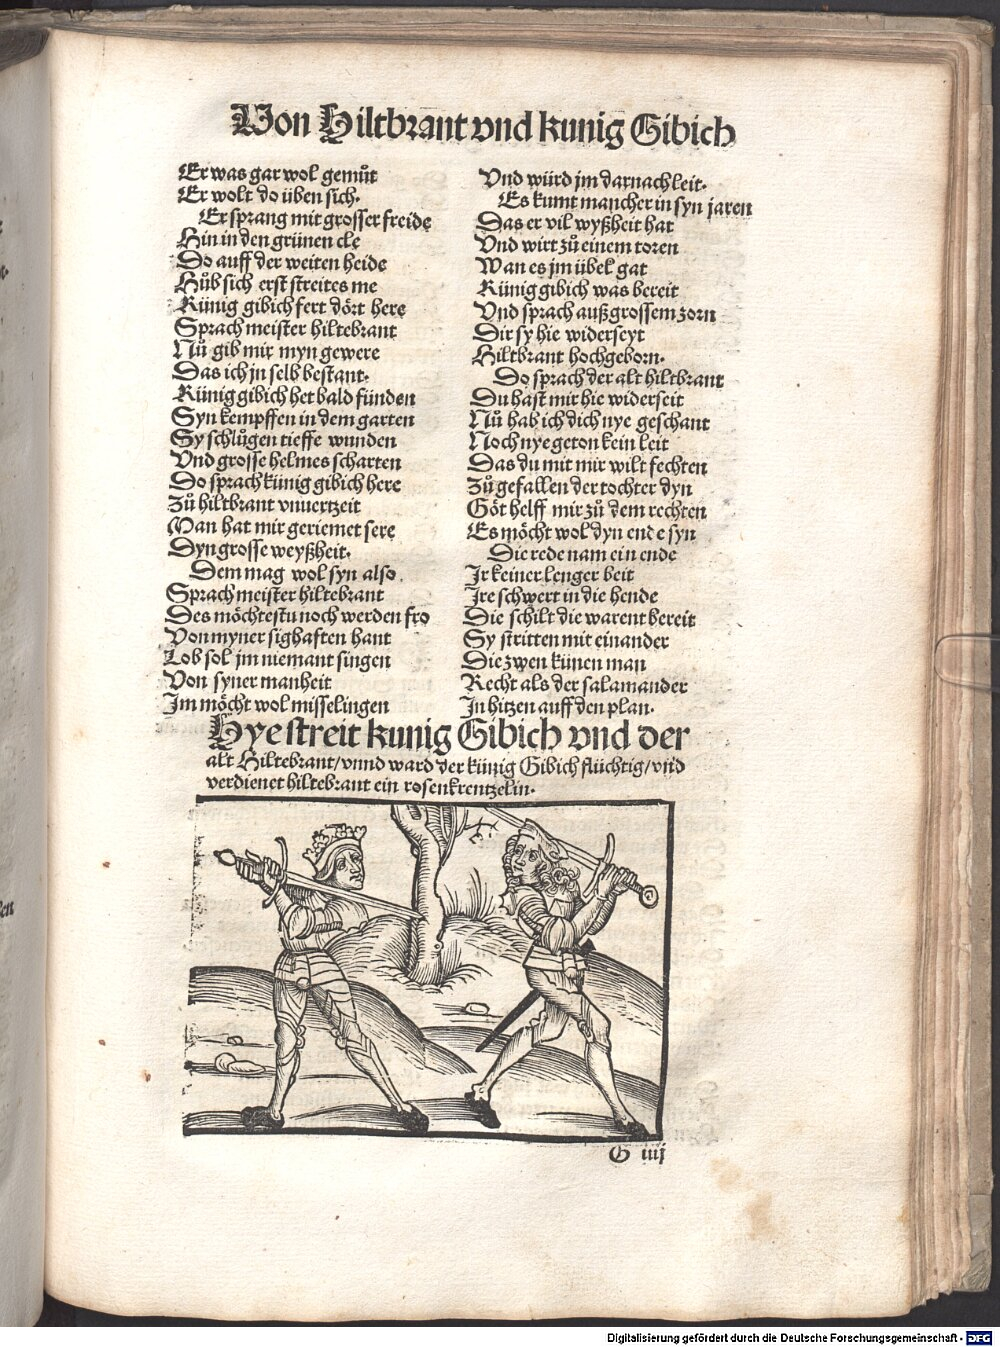 Von Hiltbrant vnd kunig Gibich
Er was gar wol gemuͦt
Er wolt do üben sich.
Er sprang mit grosser freide
Hin in den grünen cle
Do auff der weiten heide
Huͦb sich erst streites me
Künig gibich fert dört here
Sprach meister hiltebrant
Nuͦ gib mir myn gewere
Das ich jn selb bestant.
Künig gibich het bald funden
Syn kempffen in dem garten
Sy schluͦgen tieffe wunden
Vnd grosse helmes scharten
Do sprach künig gibich here
Zuͦ hiltbrant vnuertzeit
Man hat mir geriemet sere
Dyn grosse weyßheit.
Dem mag wol syn also
Sprach meister hiltebrant
Des möchtestu noch werden fro
Von myner sighaften hant
Lob sol jm niemant singen
Von syner manheit
Im möcht wol misselingen
Vnd würd jm darnach leit.
Es kumt mancher in syn jaren
Das er vil wyßheit hat
Vnd wirt zuͦ einem toren
Wan es jm übel gat
Künig gibich was bereit
Vnd sprach auß grossem zorn
Dir sy hie widerseyt
Hiltbrant hochgeborn.
Do sprach der alt hiltbrant
Du hast mir hie widerseit
Nuͦ hab ich dich nye geschant
Noch nye geton kein leit
Das du mit mir wilt fechten
Zuͦ gefallen der tochter dyn
Got helff mir zuͦ dem rechten
Es möcht wol dyn ende syn
Die rede nam ein ende
Ir keiner lenger beit
Ire schwert in die hende
Die schilt die warent bereit
Sy stritten mit einander
Die zwen künen man
Recht als der salamander
In hitzen auff den plan.
Hye streit kunig Gibich vnd der
alt Hiltebrant/vnnd ward der künig Gibich flüchtig/vnd
verdienet hiltebrant ein rosenkrentzelin.
G iiij
Digitalisierung gefördert durch die Deutsche Forschungsgemeinschaft - DFG